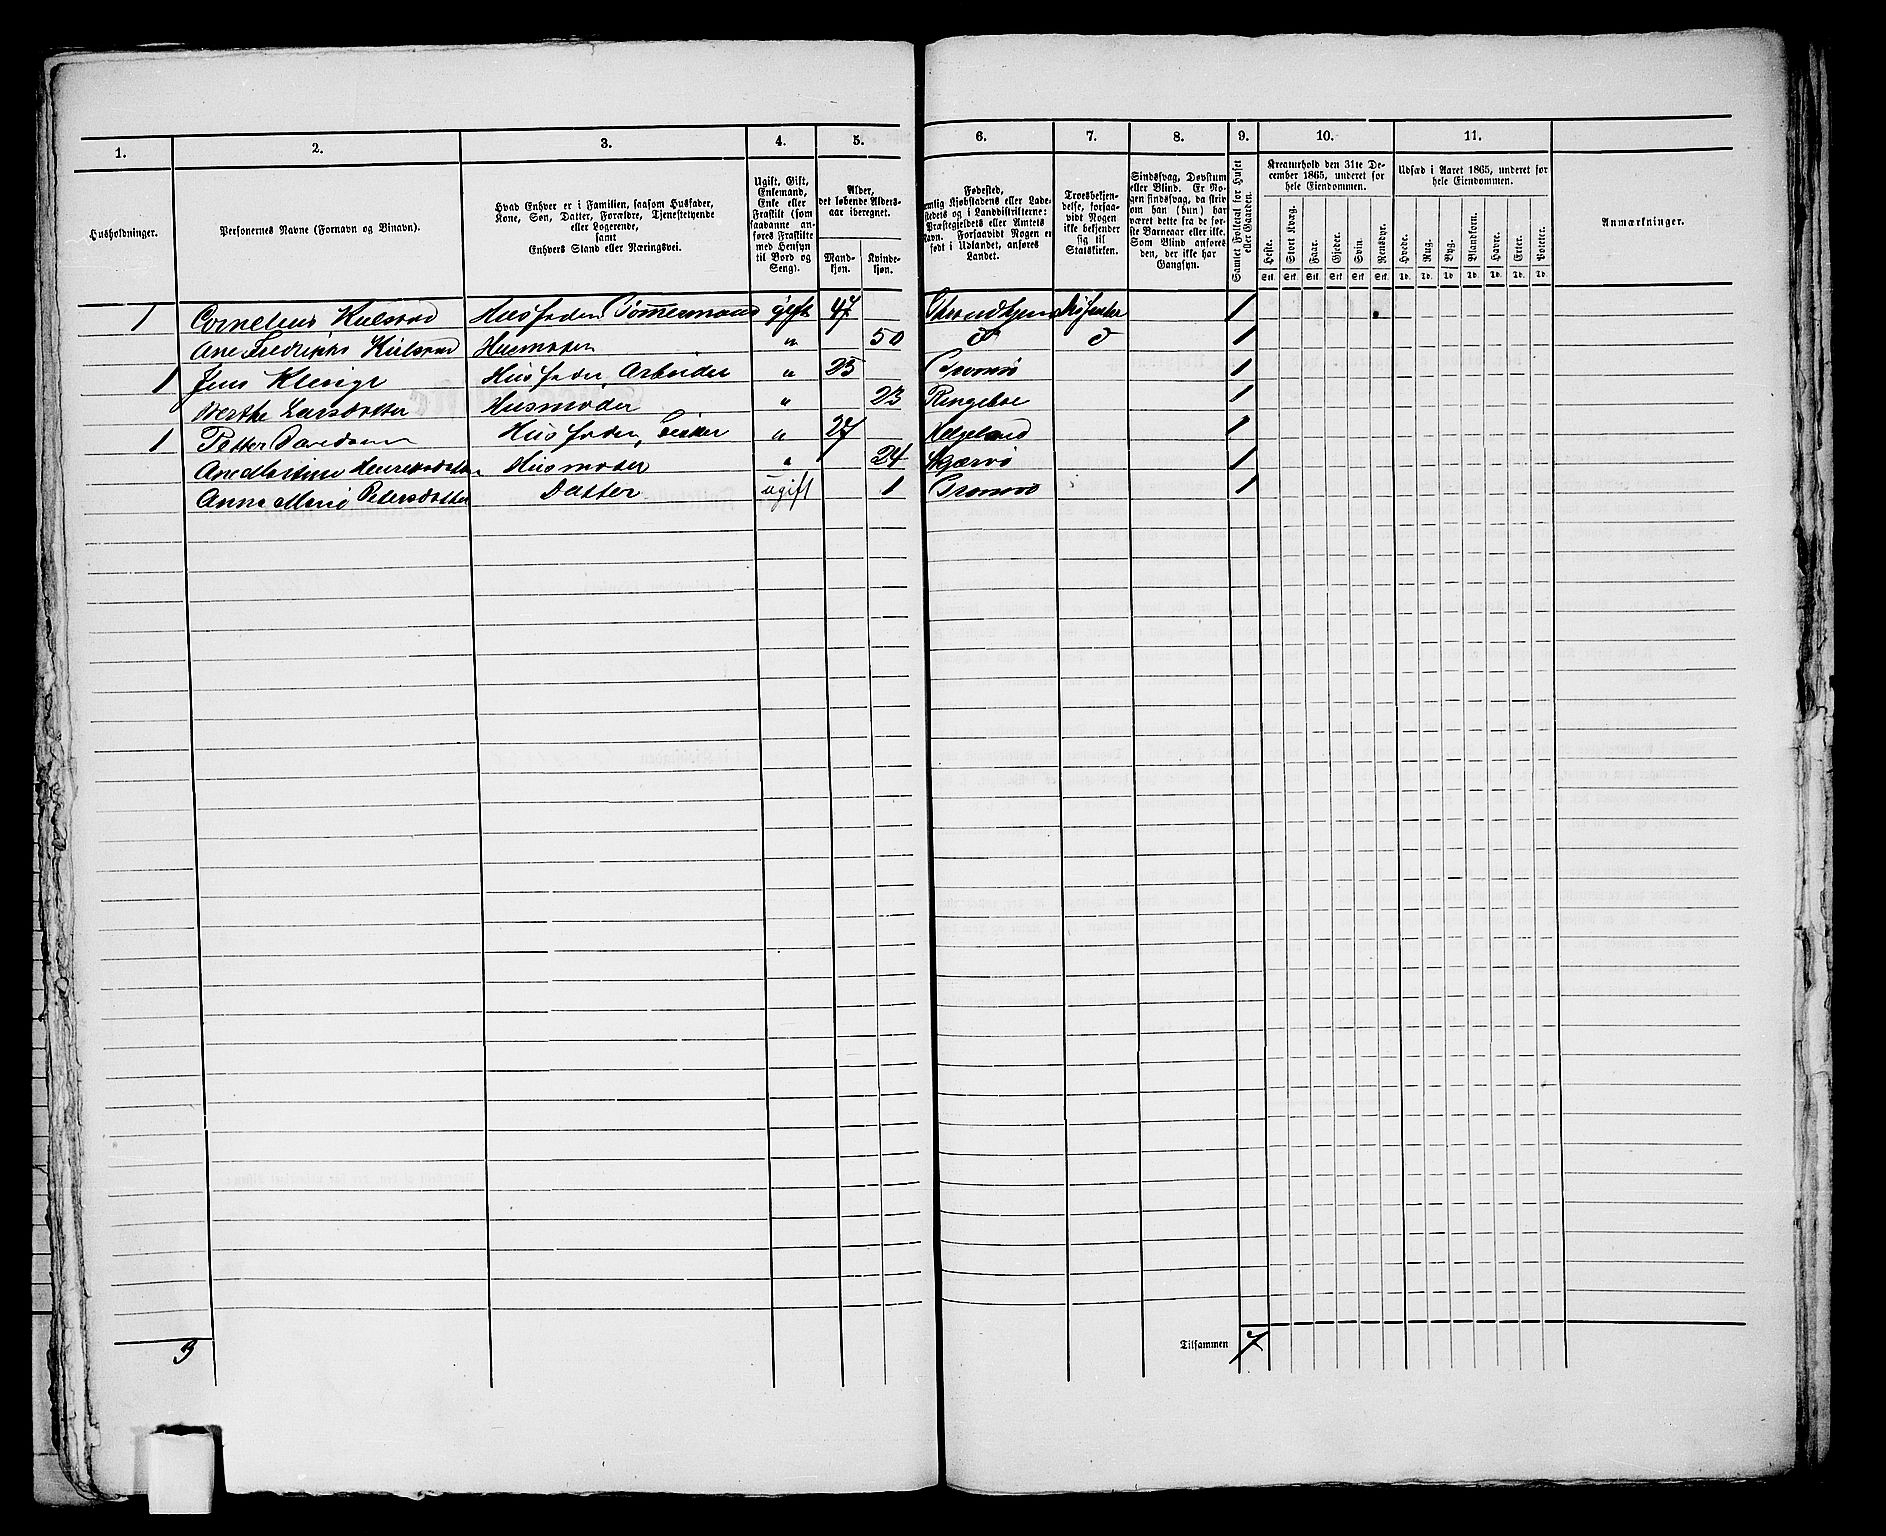 1.
2.
3.
4.
5.
6.
7.
8.
9.
10.
11.
Husholdninger.
Personernes Navne (Fornavn og Binavn).
Hvad Enhver er i Familien, saasom Husfader,
Kone, Søn, Datter, Forældre, Tjenestetyende
eller Logerende,
samt
Enhvers Stand eller Næringsvei.
Ugift, Gift,
Enkemand,
Enke eller
Fraskilt (som
saadanne an-
føres Fraskilte
med Hensyn
til Bord og
Seng).
Alder,
det løbende Alders-
aar iberegnet.
Mand-
kjøn.
Kvinde-
kjøn.
Fødested,
nemlig Kjøbstadens eller Lade-
stedets og i Landdistrikterne:
Præstegjeldets eller Amtets
Navn. Forsaavidt Nogen er
født i Udlandet, anføres
Landet.
Troesbekjen-
delse, forsaa-
vidt Nogen
ikke bekjender
sig til
Statskirken.
Sindssvag, Døvstum
eller Blind. Er No-
gen sindssvag, da skriv
om han (hun) har
været dette fra de før-
ste Barneaar eller ikke.
Som Blind anføres
den, der ikke har
Gangsyn.
Samlet Folketal for Huset
eller Gaarden.
Kreaturhold den 31te De-
cember 1865, underet for
hele Eiendommen.
Heste. Stort Kvæg. Faar. Gjeder. Svin. Rensdyr.
Stk. Stk. Stk. Stk. Stk. Stk.
Udsæd i Aaret 1865, underet for
hele Eiendommen.
Hvede. Rug. Byg. Blandkorn. Havre. Erter. Poteter.
Td. Td. Td. Td. Td. Td. Td.
Anmærkninger.
1 Cornelius Kulstad Husfader, Tømmermand gift 47 1
Ane Fredrikke Kulstad Husmoder " 50 d d 1
1 Jens Husfader, Arbeider " 25 Tromsø 1
Berthe Larsdatter Husmoder " 23 Ringeboe 1
1 Petter Davidsen Husfader, " 27 Helgeland 1
Ane Martine Husmoder " 24 Skjærvø 1
Anna Maria Petersdatter Datter ugift 1 Tromsø 1
3
Tilsammen 7